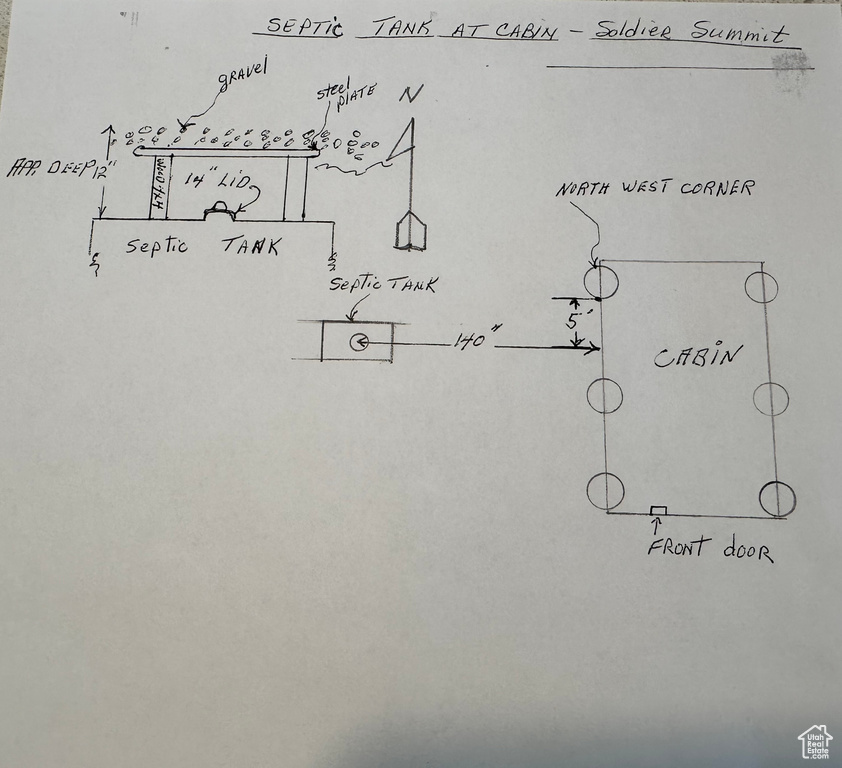 SEPTIC TANK AT CABIN - Soldier Summit
gravel
steel PLATE
N
APP. DEEP 12"
WOOD 4x4
14" LID
Septic TANK
NORTH WEST CORNER
Septic TANK
5'
140"
CABIN
FRONT dooR
Utah
Real
Estate
.com